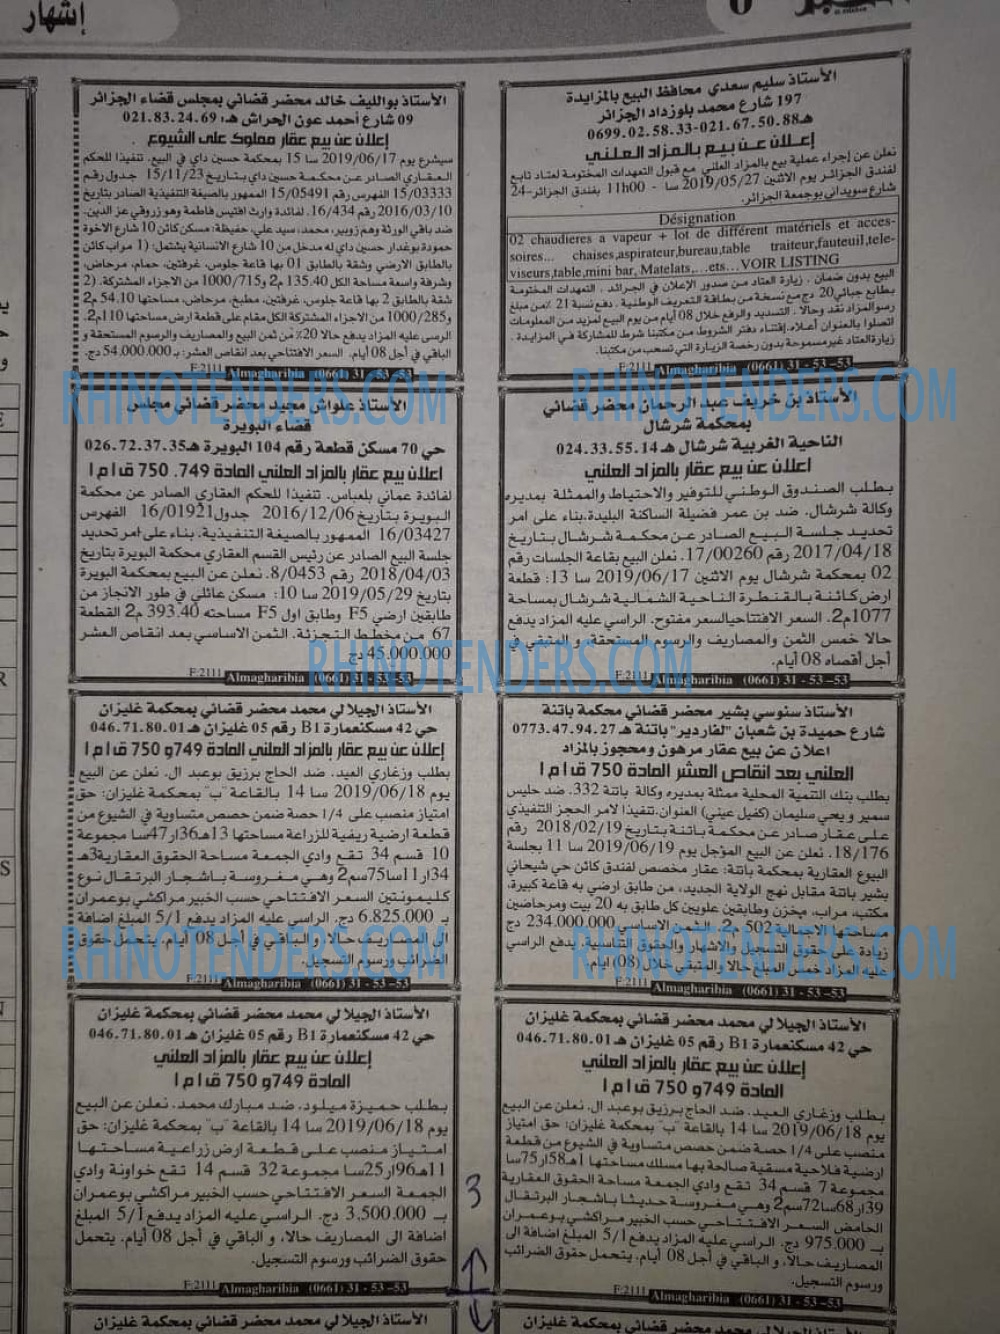 إشهار
الأستاذ سليم سعدي محافظ البيع بالمزايدة
197 شارع محمد بلوزداد الجزائر
0699.02.58.33-021.67.50.88هـ
إعلان عن بيع بالمزاد العلني
نعلن عن إجراء عملية بيع بالمزاد العلني مع قبول التعهدات المختومة لعتاد تابع
لفندق الجزائر يوم الاثنين 2019/05/27 سا - 11h00 بفندق الجزائر-24
شارع سويداني بوجمعة الجزائر.
Désignation
02 chaudieres a vapeur + lot de différent matériels et acces-
soires... chaises,aspirateur,bureau,table traiteur,fauteuil,tele-
viseurs,table,mini bar, Matelats,...ets...VOIR LISTING
البيع بدون ضمان . زيارة العتاد من صدور الإعلان في الجرائد . التعهدات المختومة
بطابع جبائي20 دج مع نسخة من بطاقة التعريف الوطنية . دفع نسبة 21 ٪من مبلغ
رسوالمزاد نقد وحالا . التسديد والرفع خلال 08 أيام من يوم البيع لمزيد من المعلومات
اتصلوا بالعنوان أعلاه. إقتناء دفتر الشروط من مكتبنا شرط للمشاركة في المزايدة .
زيارة العتاد غيرمسموحة بدون رخصة الزيارة التي تسحب من مكتبنا.
F:2111 Almagharibia (0661) 31 - 53 -53
الأستاذ بوالليف خالد محضر قضائي بمجلس قضاء الجزائر
09 شارع أحمد عون الحراش هـ: 021.83.24.69
إعلان عن بيع عقار مملوك على الشيوع
سيشرع يوم 2019/06/17 سا 15 بمحكمة حسين داي في البيع. تنفيذا للحكم
العقاري الصادر عن محكمة حسين داي بتاريخ 15/11/23 جدول رقم
15/03333 الفهرس رقم 15/05491 الممهور بالصيغة التنفيذية الصادر بتاريخ
2016/03/10 رقم 16/434. لفائدة وارث افتيس فاطمة وهو زروقي عز الدين.
ضد باقي الورثة وهم زوبير، محمد، سيد علي، حفيظة: مسكن كائن 10 شارع الاخوة
حمودة بوغدار حسين داي له مدخل من 10 شارع الانسانية يشتمل: (1 مراب كائن
بالطابق الارضي وشقة بالطابق 01 بها قاعة جلوس، غرفتين، حمام، مرحاض،
وشرفة واسعة مساحة الكل 135.40 م2 و1000/715 من الاجزاء المشتركة. (2
شقة بالطابق 2 بها قاعة جلوس، غرفتين، مطبخ، مرحاض، مساحتها 54.10 م2
و1000/285 من الاجزاء المشتركة الكل مقام على قطعة ارض مساحتها 110م2.
الرسى عليه المزاد يدفع حالا 20٪ من ثمن البيع والمصاريف والرسوم المستحقة و
الباقي في أجل 08 أيام. السعر الافتتاحي بعد انقاص العشر: بـ 54.000.000 دج.
F:2111 Almagharibia (0661) 31 - 53 -53
RHINOTENDERS.COM
RHINOTENDERS.COM
الأستاذ بن خريف عبد الرحمان محضر قضائي
بمحكمة شرشال
الناحية الغربية شرشال هـ 024.33.55.14
إعلان عن بيع عقار بالمزاد العلني
بطلب الصندوق الوطني للتوفير والاحتياط والممثلة بمديره
وكالة شرشال. ضد بن عمر فضيلة الساكنة البليدة.بناء على امر
تحديد جلسة البيع الصادر عن محكمة شرشال بتاريخ
2017/04/18 رقم 17/00260. نعلن البيع بقاعة الجلسات رقم
02 بمحكمة شرشال يوم الاثنين 2019/06/17 سا 13: قطعة
ارض كائنة بالقنطرة الناحية الشمالية شرشال بمساحة
1077م2. السعر الافتتاحيالسعر مفتوح. الراسي عليه المزاد يدفع
حالا خمس الثمن والمصاريف والرسوم المستحقة، و المتبقي في
أجل أقصاه 08 أيام.
F:2111 Almagharibia (0661) 31 - 53 -53
الأستاذ علواش مجيد محضر قضائي مجلس
قضاء البويرة
حي 70 مسكن قطعة رقم 104 البويرة هـ026.72.37.35
اعلان بيع عقار بالمزاد العلني المادة 749. 750 ق ا م ا
لفائدة عماني بلعباس. تنفيذا للحكم العقاري الصادر عن محكمة
البويرة بتاريخ 2016/12/06 جدول16/01921 الفهرس
16/03427 الممهور بالصيغة التنفيذية. بناء على امر تحديد
جلسة البيع الصادر عن رئيس القسم العقاري محكمة البويرة بتاريخ
2018/04/03 رقم 8/0453. نعلن عن البيع بمحكمة البويرة
بتاريخ 2019/05/29 سا 10: مسكن عائلي في طور الانجاز من
طابقين ارضي F5 وطابق اول F5 مساحته 393.40 م2 القطعة
67 من مخطط التجزئة. الثمن الاساسي بعد انقاص العشر
45.000.000 دج
F:2111 Almagharibia (0661) 31 - 53 -53
RHINOTENDERS.COM
الأستاذ سنوسي بشير محضر قضائي محكمة باتنة
شارع حميدة بن شعبان "لفاردير" باتنة هـ 0773.47.94.27
اعلان عن بيع عقار مرهون ومحجوز بالمزاد
العلني بعد انقاص العشر المادة 750 ق ا م ا
بطلب بنك التنمية المحلية ممثلة بمديره وكالة باتنة 332. ضد حليس
سمير و يحي سليمان (كفيل عيني) العنوان. تنفيذا لامر الحجز التنفيذي
على عقار صادر عن محكمة باتنة بتاريخ 2018/02/19 رقم
18/176. نعلن عن البيع المؤجل يوم 2019/06/19 سا 11 بجلسة
البيوع العقارية بمحكمة باتنة: عقار مخصص لفندق كائن حي شيحاني
بشير باتنة مقابل نهج الولاية الجديد، من طابق ارضي به قاعة كبيرة،
مكتب، مراب، مخزن وطابقين علويين كل طابق به 20 بيت ومرحاضين
مساحته الاجمالية 502 م2. الثمن الاساسي 234.000.000 دج
زيادة على حقوق التسجيل والاشهار والحقوق التناسبية. يدفع الراسي
عليه المزاد خمس المبلغ حالا والمتبقي خلال (08) أيام.
F:2111 Almagharibia (0661) 31 - 53 -53
الأستاذ الجيلالي محمد محضر قضائي بمحكمة غليزان
حي 42 مسكنعمارة B1 رقم 05 غليزان هـ 046.71.80.01
إعلان عن بيع عقار بالمزاد العلني المادة 749و 750 ق ا م ا
بطلب وزغاري العيد. ضد الحاج برزيق بوعبد ال. نعلن عن البيع
يوم 2019/06/18 سا 14 بالقاعة "ب" بمحكمة غليزان: حق
امتياز منصب على 1/4 حصة ضمن حصص متساوية في الشيوع من
قطعة ارضية ريفية للزراعة مساحتها 13هـ36ار47سا مجموعة
10 قسم 34 تقع وادي الجمعة مساحة الحقوق العقارية3هـ
34ار11سا75سم2 وهي مغروسة باشجار البرتقال نوع
كليمونتين السعر الافتتاحي حسب الخبير مراكشي بوعمران
بـ 6.825.000 دج. الراسي عليه المزاد يدفع 5/1 المبلغ اضافة
الى المصاريف حالا، و الباقي في أجل 08 أيام. يتحمل حقوق
الضرائب ورسوم التسجيل.
F:2111 Almagharibia (0661) 31 - 53 -53
RHINOTENDERS.COM
RHINOTENDERS.COM
الأستاذ الجيلالي محمد محضر قضائي بمحكمة غليزان
حي 42 مسكنعمارة B1 رقم 05 غليزان هـ 046.71.80.01
إعلان عن بيع عقار بالمزاد العلني
المادة 749و 750 ق ا م ا
بطلب وزغاري العيد. ضد الحاج برزيق بوعبد ال. نعلن عن البيع
يوم 2019/06/18 سا 14 بالقاعة "ب" بمحكمة غليزان: حق امتياز
منصب على 1/4 حصة ضمن حصص متساوية في الشيوع من قطعة
ارضية فلاحية مسقية صالحة بها مسلك مساحتها 1هـ58ار75سا
مجموعة 7 قسم 34 تقع وادي الجمعة مساحة الحقوق العقارية
39ار68سا72سم2 وهي مغروسة حديثا باشجار البرتقال
الحامض السعر الافتتاحي حسب الخبير مراكشي بوعمران
بـ 975.000 دج. الراسي عليه المزاد يدفع 5/1 المبلغ اضافة الى
المصاريف حالا، و الباقي في أجل 08 أيام. يتحمل حقوق الضرائب
ورسوم التسجيل.
F:2111 Almagharibia (0661) 31 - 53 -53
الأستاذ الجيلالي محمد محضر قضائي بمحكمة غليزان
حي 42 مسكنعمارة B1 رقم 05 غليزان هـ 046.71.80.01
إعلان عن بيع عقار بالمزاد العلني
المادة 749و 750 ق ا م ا
بطلب حميزة ميلود. ضد مبارك محمد. نعلن عن البيع
يوم 2019/06/18 سا 14 بالقاعة "ب" بمحكمة غليزان: حق
امتياز منصب على قطعة ارض زراعية مساحتها
11هـ96ار25سا مجموعة 32 قسم 14 تقع خواونة وادي
الجمعة السعر الافتتاحي حسب الخبير مراكشي بوعمران
بـ 3.500.000 دج. الراسي عليه المزاد يدفع 5/1 المبلغ
اضافة الى المصاريف حالا، و الباقي في أجل 08 أيام. يتحمل
حقوق الضرائب ورسوم التسجيل.
F:2111 Almagharibia (0661) 31 - 53 -53
3
الأستاذ الجيلالي محمد محضر قضائي بمحكمة غليزان
الأستاذ الجيلالي محمد محضر قضائي بمحكمة غليزان